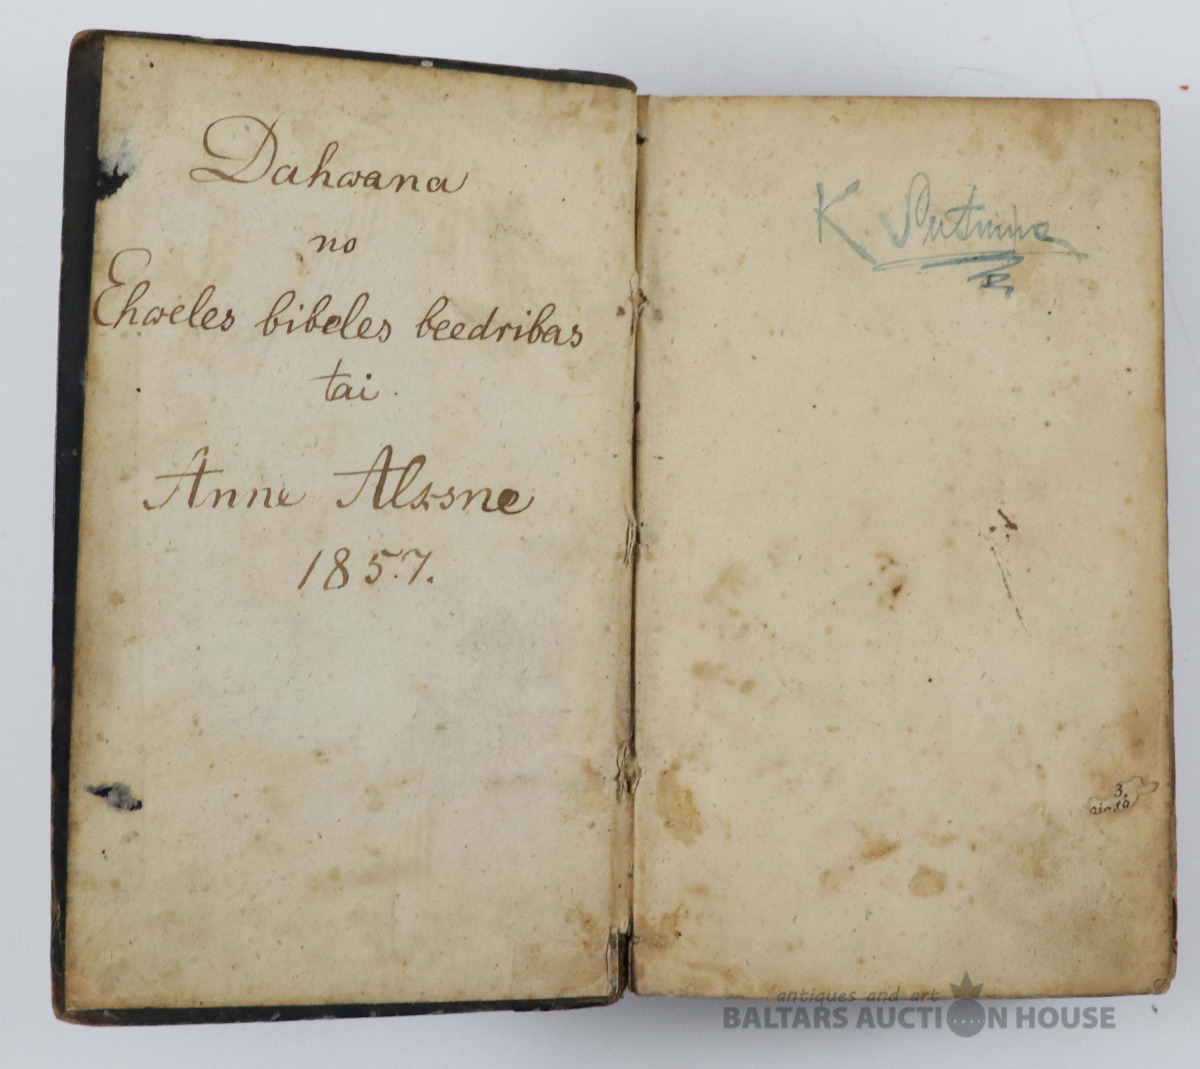 Dahwana
no
Ehweles bibeles beedribas
tai
Anne Alksne
1857.
K
3.
antiques and art
BALTARS AUCTION HOUSE